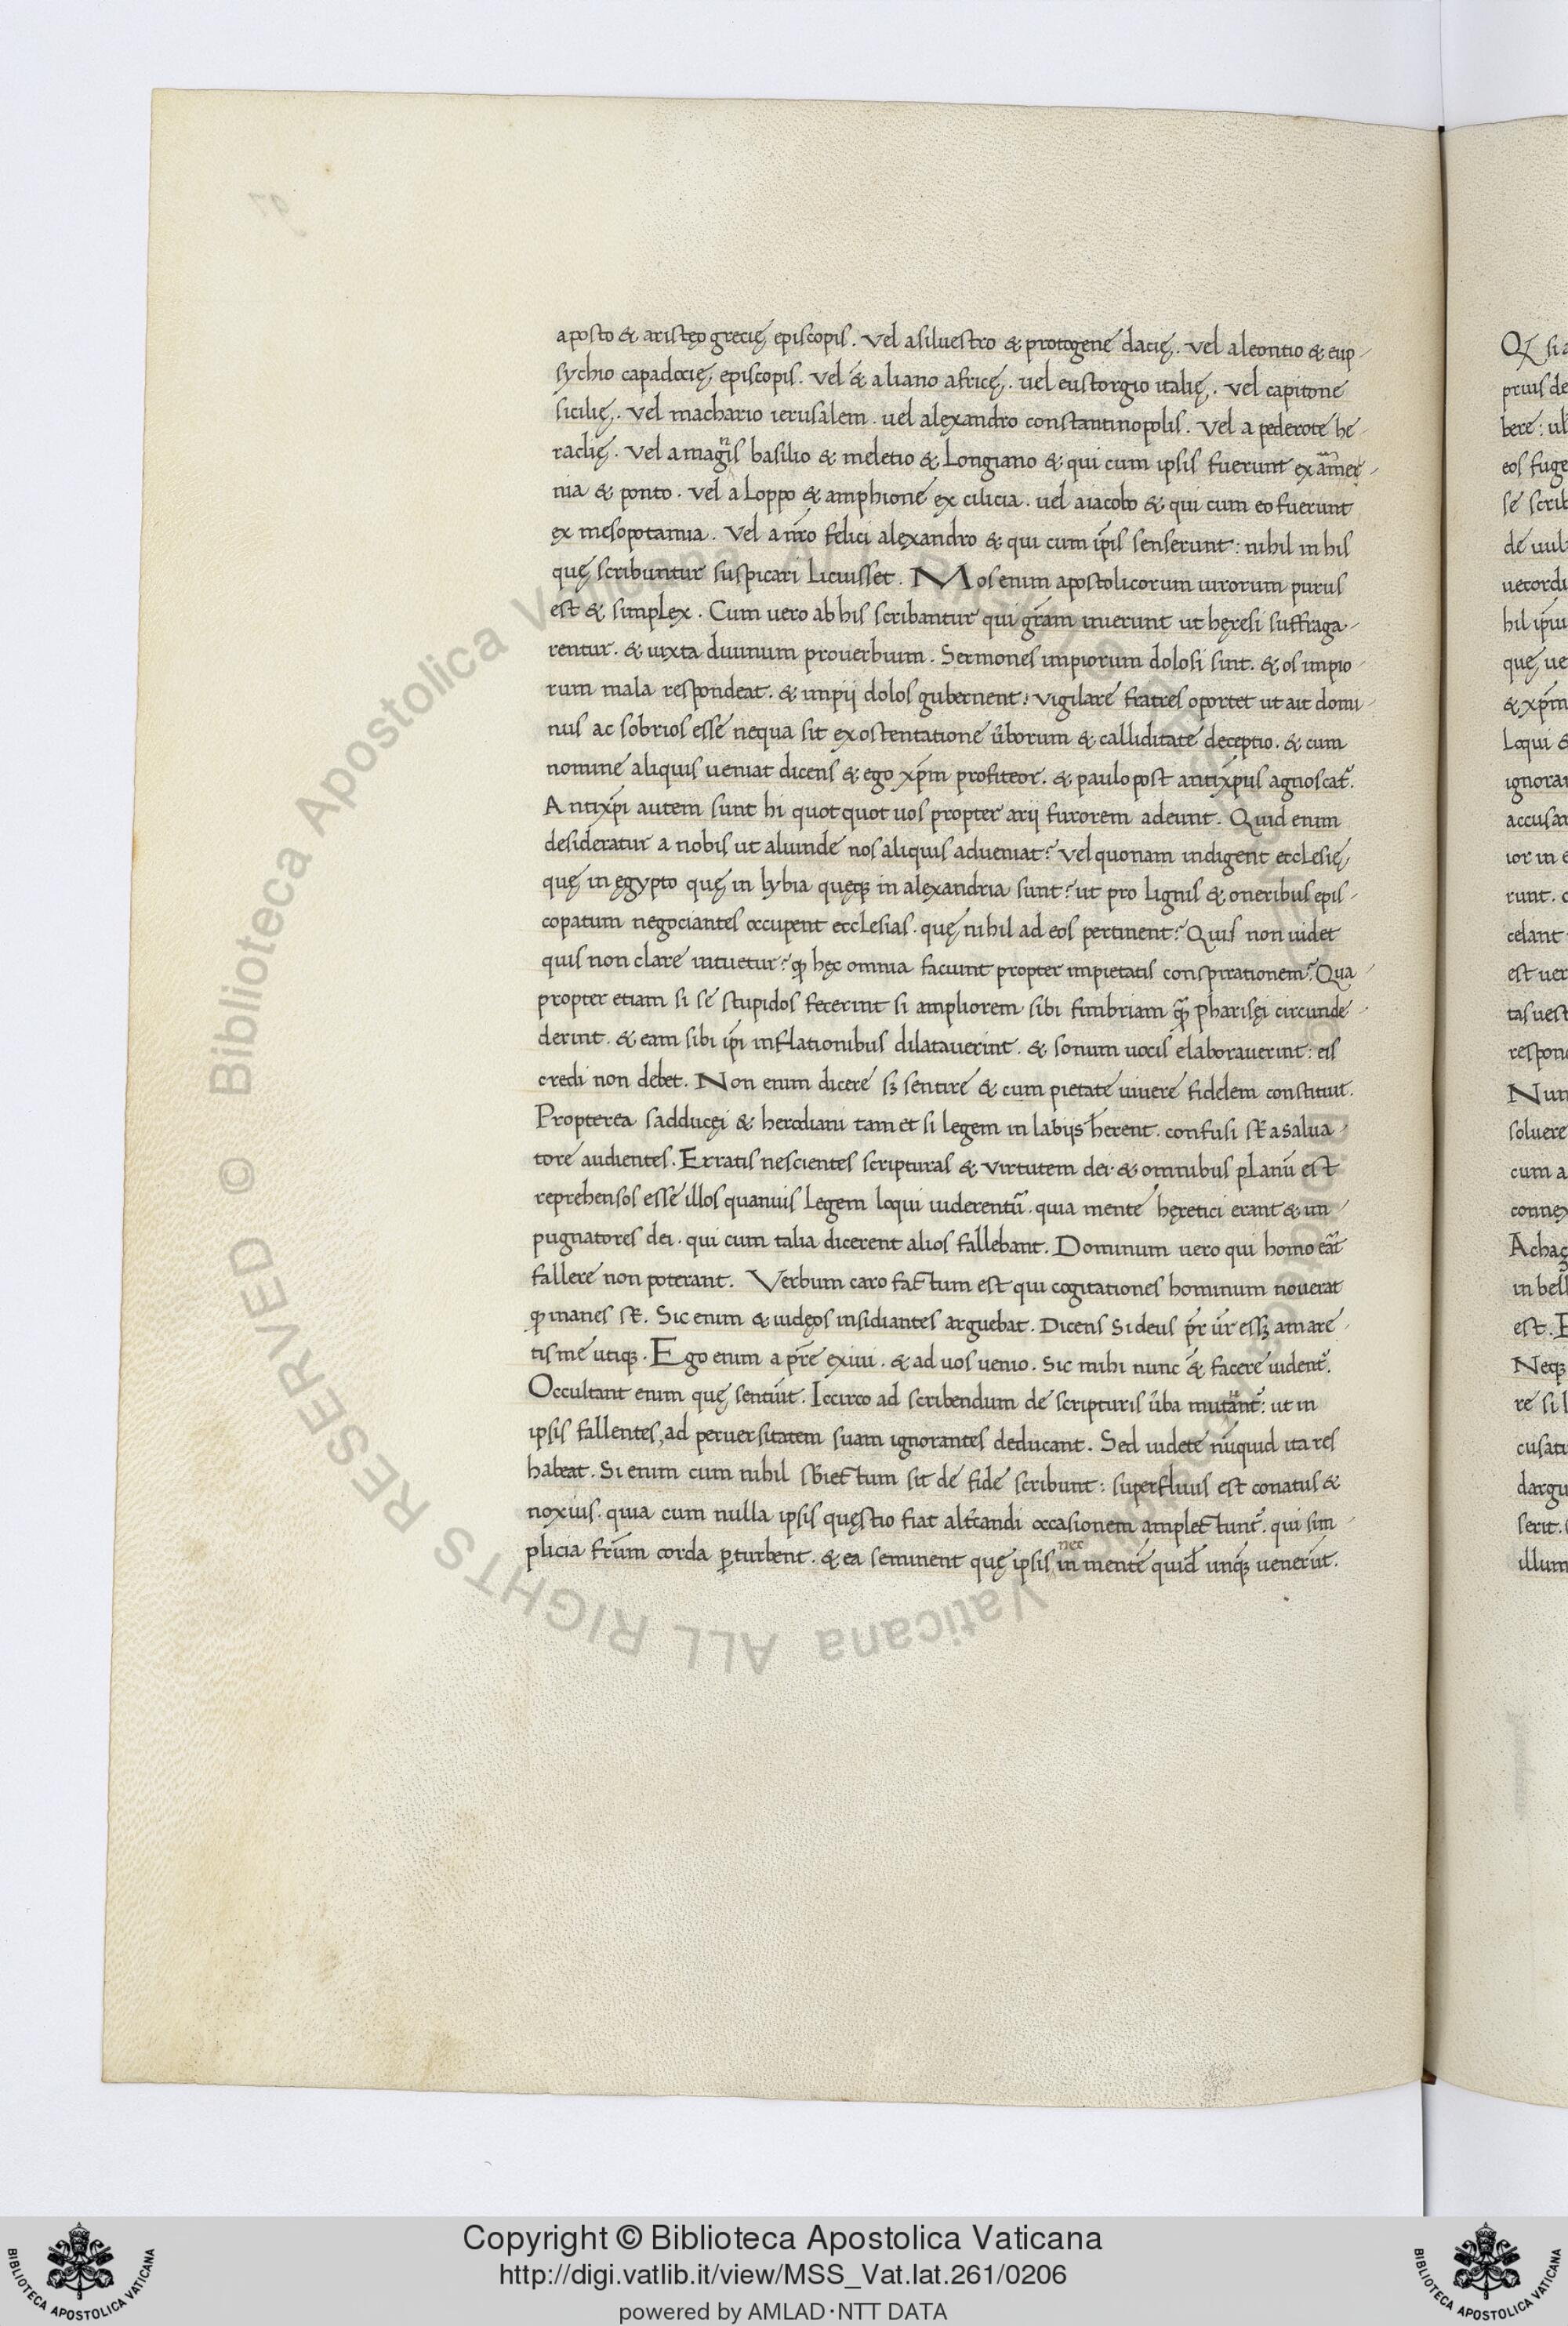 aposto & aristęo grecię episcopis. Vel a siluestro & protogene dacię. Vel a leontio & eup
sychio capadocię, episcopis. Vel & a liano africę. uel eustorgio italię. Vel capitone
sicilię. Vel machario ierusalem. uel alexandro constantinopolis. Vel a pederote he
raclię. Vel a magnis basilio & meletio & Longiano & qui cum ipsis fuerunt ex armę
nia & ponto. Vel a Loppo & amphione ex cilicia. uel a iacobo & qui cum eo fuerunt
ex mesopotamia. Vel a nr̄o felici alexandro & qui cum ip̄is senserunt: nihil in his
quę scribuntur suspicari Licuisset. Mos enim apostolicorum uirorum purus
est & simplex. Cum uero ab his scribantur qui gr̄am inierunt ut hęresi suffraga
rentur. & iuxta diuinum prouerbium. Sermones impiorum dolosi sint. & os impio
rum mala respondeat. & impij dolos gubernent: vigilare fratres oportet ut ait domi
nus ac sobrios esse nequa sit ex ostentatione ūborum & calliditate deceptio. & cum
nomine aliquis ueniat dicens & ego xp̄m profiteor. & paulo post antixp̄us agnoscat̄.
Antixp̄i autem sunt hi quotquot uos propter arij furorem adeunt. Quid enim
desideratur a nobis ut aliunde nos aliquis adueniat? Vel quonam indigent ecclesię,
quę in ęgypto quę in lybia quęq; in alexandria sunt? ut pro Lignis & oneribus epis
copatum negociantes occupent ecclesias. quę nihil ad eos pertinent? Quis non uidet
quis non clare intuetur? ꝙ hęc omnia faciunt propter impietatis conspirationem? Qua
propter etiam si se stupidos fecerint si ampliorem sibi fimbriam q̄ꝫ Pharisęi circunde
derint. & eam sibi ip̄i inflationibus dilatauerint. & sonum uocis elaborauerint: eis
credi non debet. Non enim dicere sꝫ sentire & cum pietate uiuere fidelem constituit.
Propterea sadducęi & herodiani tam et si legem in labijs h̄erent. confusi st̄ a salua
tore audientes. Erratis nescientes scripturas & virtutem dei. & omnibus planū est
reprehensos esse illos quanuis Legem loqui uiderentū. quia mente hęretici erant & im
pugnatores dei. qui cum talia dicerent alios fallebant. Dominum uero qui homo eāt
fallere non poterant. Verbum caro factum est qui cogitationes hominum nouerat
ꝙ inanes st̄. Sic enim & iudęos insidiantes arguebat. Dicens Si deus pr̄ ur̄ essꝫ amare
tis me utiq;. Ego enim a pr̄e exiui. & ad uos uenio. Sic mihi nunc & facere uident̄.
Occultant enim quę sentiūt. Iccirco ad scribendum de scripturis ūba mutant̄: ut in
ipsis fallentes, ad peruersitatem suam ignorantes deducant. Sed uidete nūquid ita res
habeat. Si enim cum nihil sb̄iectum sit de fide scribunt: superfluus est conatus &
noxius. quia cum nulla ipsis quęstio fiat alt̄candi occasionem amplectunt̄. qui sim
plicia fr̄um corda ꝑturbent. & ea seminent quę ipsis nec in mente quid̄ unq̄ꝫ uenerūt.
Copyright © Biblioteca Apostolica Vaticana
http://digi.vatlib.it/view/MSS_Vat.lat.261/0206
powered by AMLAD·NTT DATA